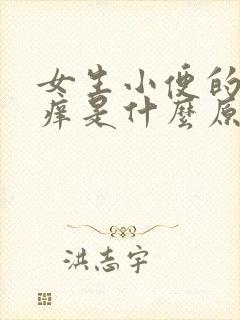 女生小便的
痒是什麼原
洪志宇